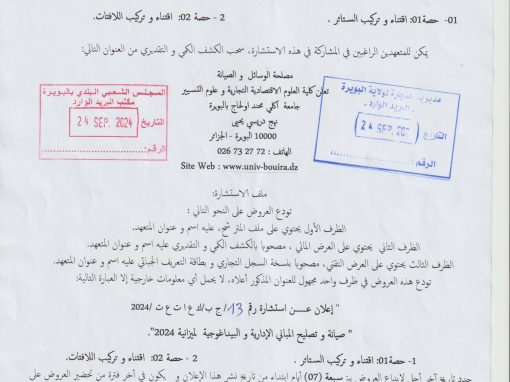 01- حصة01: اقتناء و تركيب الستائر . 2 - حصة 02: اقتناء و تركيب اللافتات.
يمكن للمتعهدين الراغبين في المشاركة في هذه الاستشارة، سحب الكشف الكمي و التقديري من العنوان التالي:
مصلحة الوسائل و الصيانة
كلية العلوم الاقتصادية التجارية و علوم التسيير
جامعة آكلي محند اولحاج بالبويرة
نهج دريسي يحيى
10000 البويرة - الجزائر
الهاتف : 72 27 73 026
Site Web : www.univ-bouira.dz
المجلس الشعبي البلدي بالبويرة
مكتب البريد الوارد
التاريخ 24 SEP. 2024
الرقم:
لولاية البويرة
البريد الوارد
التاريخ 24 SEP. 202
الرقم
ملف الاستشارة:
تودع العروض على النحو التالي :
الظرف الأول يحتوي على ملف الترشح، عليه اسم و عنوان المتعهد.
الظرف الثاني يحتوي على العرض المالي ، مصحوبا بالكشف الكمي و التقديري عليه اسم و عنوان المتعهد.
الظرف الثالث يحتوي على العرض التقني، مصحوبا بنسخة السجل التجاري و بطاقة التعريف الجبائي عليه اسم و عنوان المتعهد.
تودع هذه العروض في ظرف واحد مجهول للعنوان المذكور أعلاه، لا يحمل أي معلومات خارجية إلا العبارة التالية:
" إعلان عـــن استشارة رقم 13/ج ب/ك ع ا ت ع ت /2024
" صيانة و تصليح المباني الإدارية و البيداغوجية لميزانية 2024".
1- حصة01: اقتناء و تركيب الستائر . 2 - حصة 02: اقتناء و تركيب اللافتات.
تاريخ آخر أجل لايداع العروض بـ: سبعة (07) أيام ابتداء من تاريخ نشر هذا الإعلان و يكون في آخر فترة من تحضير العروض على